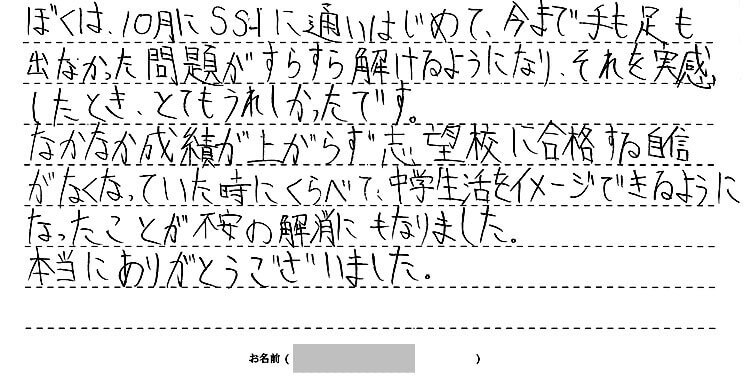 ぼくは、10月にSSゼに通いはじめて、今まで手も足も
出なかった問題がすらすら解けるようになり、それを実感
したとき、とてもうれしかったです。
なかなか成績が上がらず志望校に合格する自信
がなくなっていた時にくらべて、中学生活をイメージできるように
なったことが不安の解消にもなりました。
本当にありがとうございました。
お名前( )